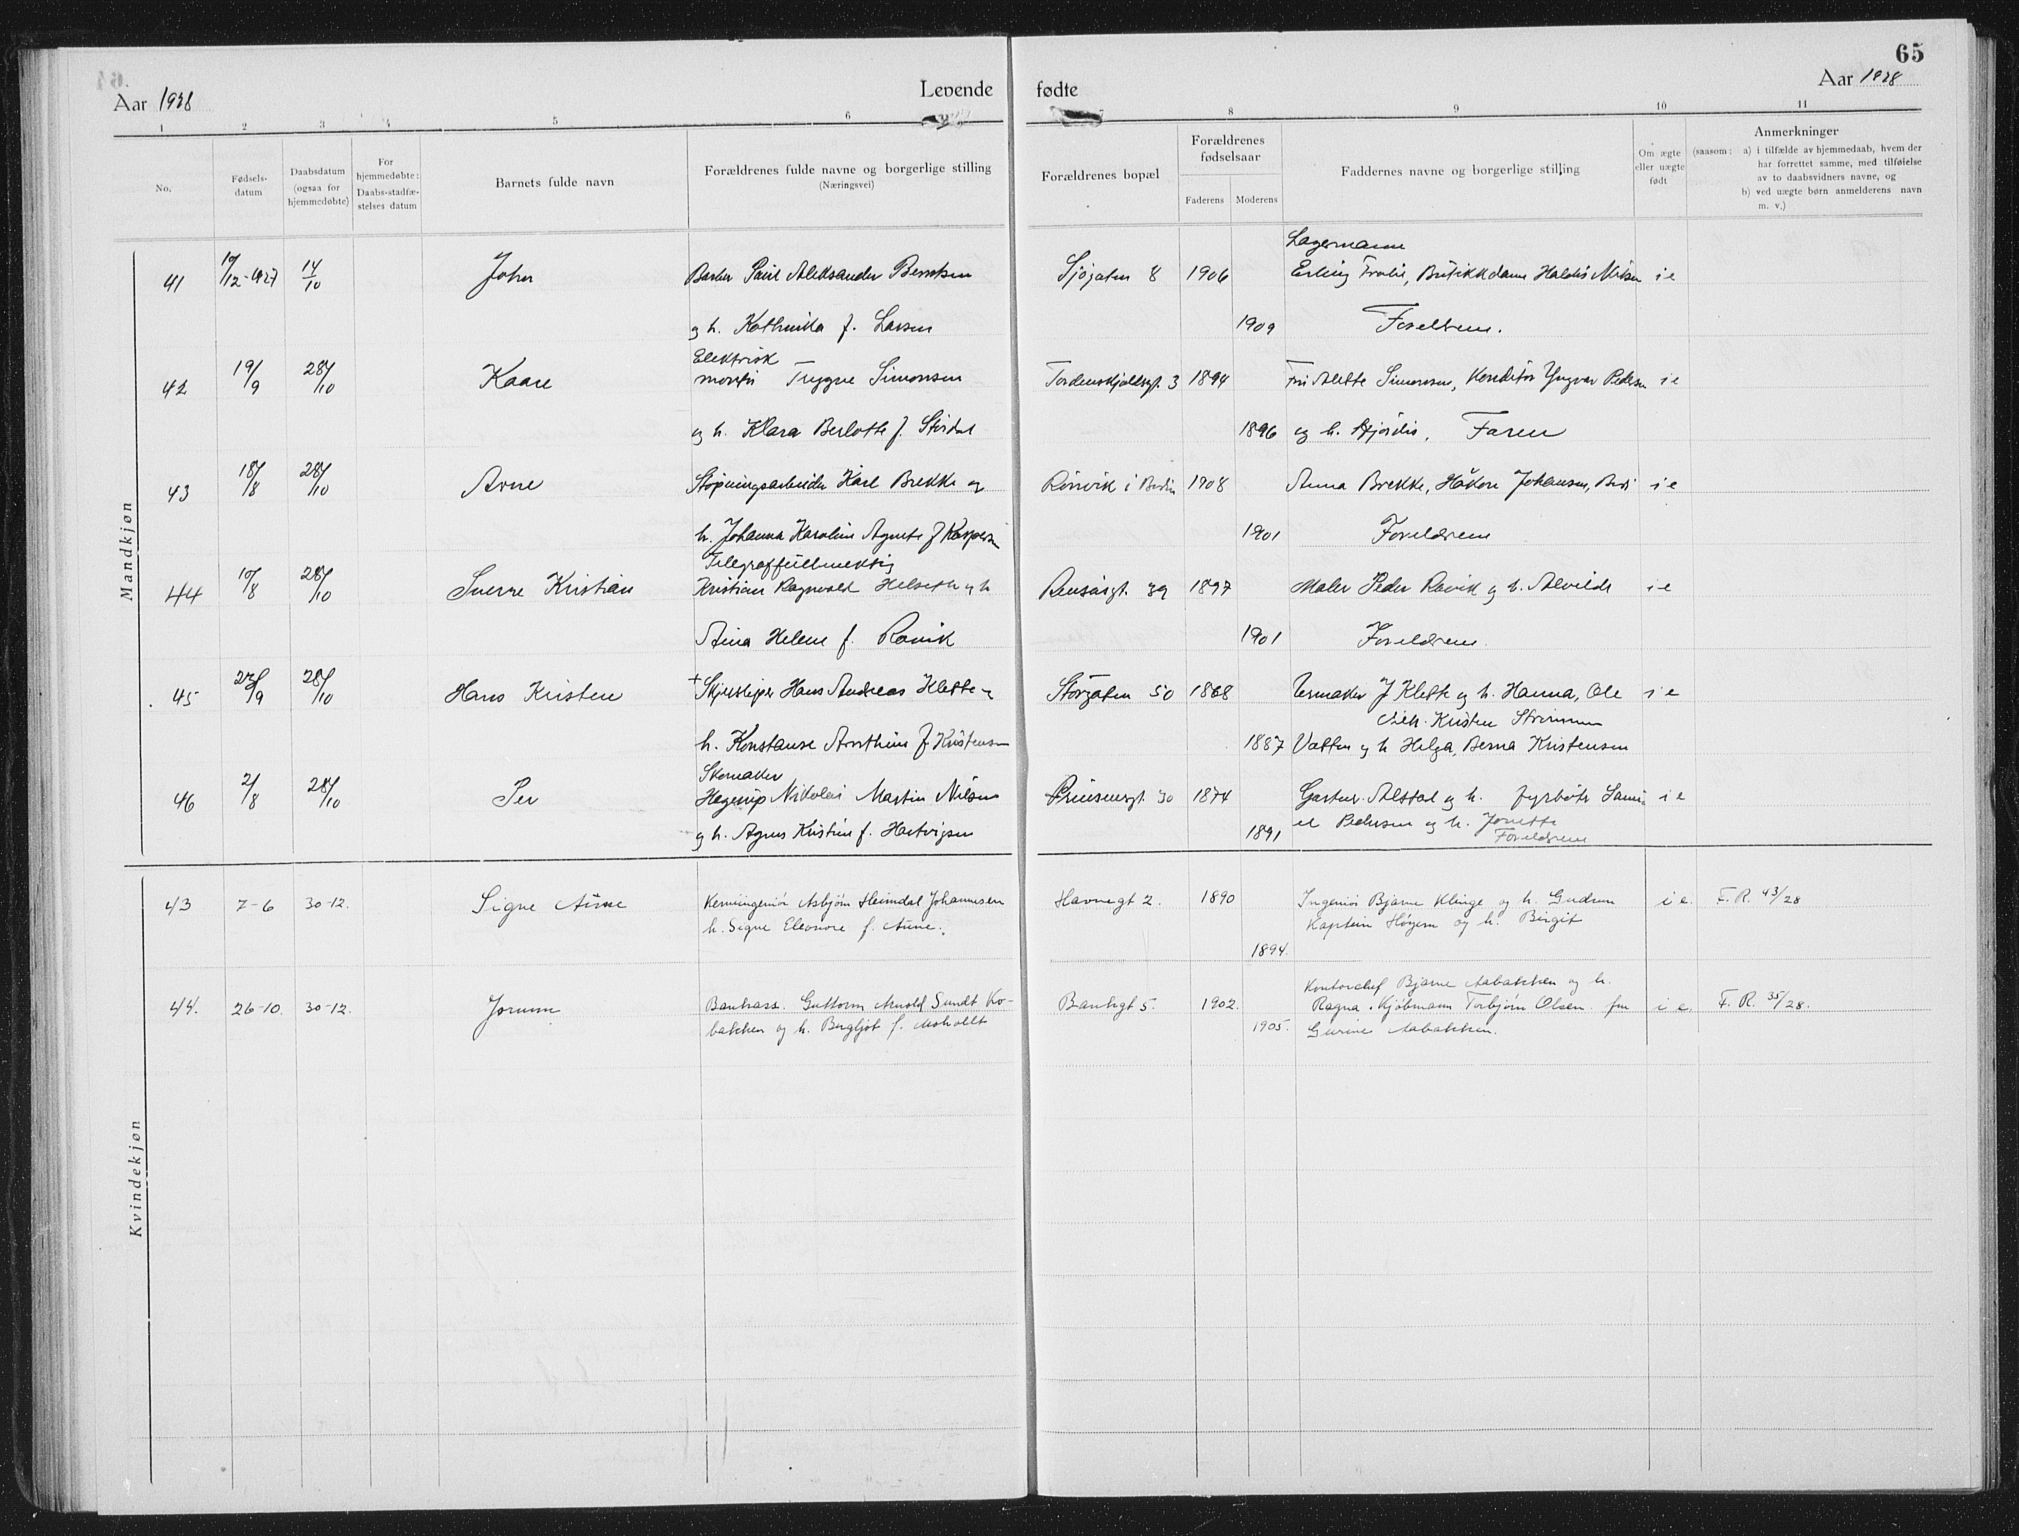 65
Aar 1928
Levende
fødte
Aar 1928
1 2 3 4 5 6 8 9 10 11
No.
Fødsels-
datum
Daabsdatum
(ogsaa for
hjemmedøbte)
For
hjemmedøbte:
Daabs-stadfæ-
stelses datum
Barnets fulde navn
Forældrenes fulde navne og borgerlige stilling
(Næringsvei)
Forældrenes bopæl
Forældrenes
fødselsaar
Faderens
Moderens
Faddernes navne og borgerlige stilling
Om ægte
eller uægte
født
Anmerkninger
(saasom: a) i tilfælde av hjemmedaab, hvem der
har forrettet samme, med tilføielse
av to daabsvidners navne, og
b) ved uægte børn anmelderens navn
m. v.)
Mandkjøn
Lagermann
41 10/12-1927 14/10 John Barber Paul Aleksander Berntsen Sjøgaten 8 1906 Erling Butikkdame Haldis Nilsen i e
og h. f. Larsen 1909 Foreldrene.
Elektrisk
42 19/9 28/10 Kaare montør Trygve Simonsen Tordenskjoldsgt. 3 1894 Fru Alette Simonsen, Konditor Yngvar Pedersen i e
og h. Klara Berlotte f. Stordal 1896 og h. Hjørdis, Faren
43 18/8 28/10 Arne Støpningsarbeider Kåre Brekke og Rønvik i Bodin 1908 Anna Brekke, Håkon Johansen, i e
h. Johanna Karoline Agnete f Kaspersen 1901 Foreldrene
Telegraffullmektig
44 10/8 28/10 Sverre Kristian Kristian Ragnvald Helseth og h Rensåsgt. 39 1897 Maler Peder Ravik og h. Alvilde i e
Aina Helene f. Ravik 1901 Foreldrene.
45 23/9 28/10 Hans Kristen + Hans Andreas Klette og Storgaten 50 1868 Urmaker J Klette og h. Hanna, Ole i e
Kristen Strimmen
h. Konstanse Arnthine f Kristensen 1887 Vatten og h Helga, Berna Kristensen
Skomaker
46 2/8 28/10 Per Hagerup Nikolai Martin Nilsen Prinsensgt. 30 1874 Gartner Alstad og h. fyrbøter Samu- i e
og h. Agnes Kristine f. Hartvigsen 1891 el Pedersen og h. Jonette
Foreldrene
Kvindekjøn
43 7-6 30-12. Signe Aune Kemiingeniør Asbjørn Heimdal Johannesen Havnegt 2. 1890 Ingeniør Bjarne Klinge og h. Gudrun i e. F. R. 43/28
h. Signe Eleonore f. Aune. Kaptein Høyem og h. Birgit
1894.
Kontorchef Bjarne Aabakken og h.
44. 26-10. 30-12. Jorunn Bankass. Guttorm Arnold Sundt Ko- Bankgt 5. 1902. Ragna. Kjøbmann Torbjørn Olsen. fru i e. F. R. 35/28.
bakken og h. Bergljot f. Moholdt 1905. Gurine Aabakken.